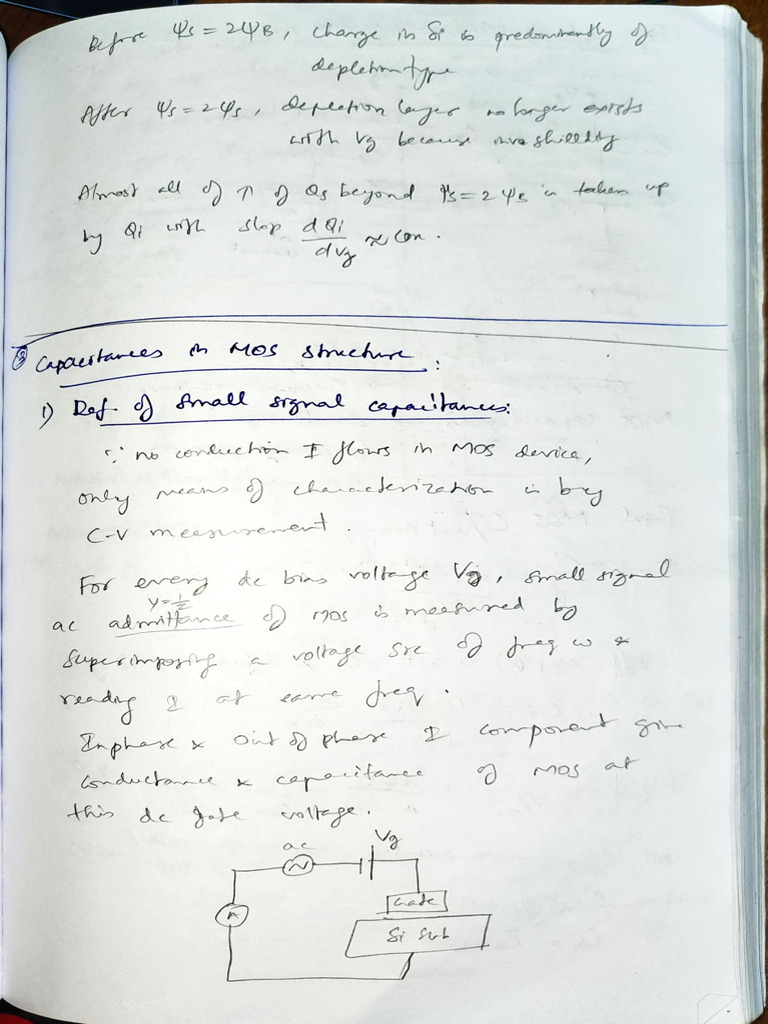 Before ψs = 2ψB, charge in Si is predominantly of
depletion type
After ψs = 2ψs, depletion layer no longer exists
with Vg because inv shielding
Almost all of ↑ of Qs beyond ψs = 2ψB is taken up
by Qi with slop dQi/dVg ≈ Cox.
③ Capacitances in MOS structure:
1) Def of small signal capacitances:
∵ no conduction I flows in MOS device,
only means of characterization is by
C-V measurement.
For every dc bias voltage Vg, small signal
Y=1/Z
ac admittance of MOS is measured by
superimposing a voltage src of freq ω &
reading I at same freq.
Inphase & out of phase I component give
conductance & capacitance of MOS at
this dc gate voltage.
ac
Vg
A
Gate
Si Sub